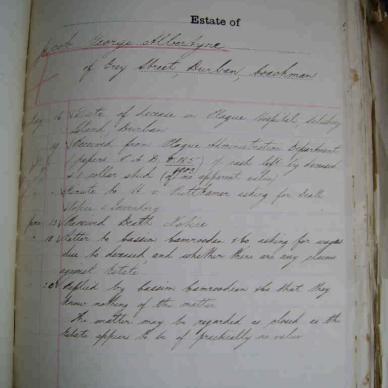 Estate of
Jacob George Albertyne
of Grey Street, Durban, Coachman
Date of decease in Plague Hospital, Salisbury
Island, Durban
Received from Plague Administration Department
papers of cash left by deceased
& collar stud (of no apparent value)
Wrote to asking for Death
Notice & Inventory
June Received Death Notice
Letter to Cassim Camroodin & Co asking for wages
due to deceased, and whether there are any claims
against Estate
Replied by Cassim Camroodien & Co that they
know nothing of the matter.
The matter may be regarded as closed as the
Estate appears to be of practically no value